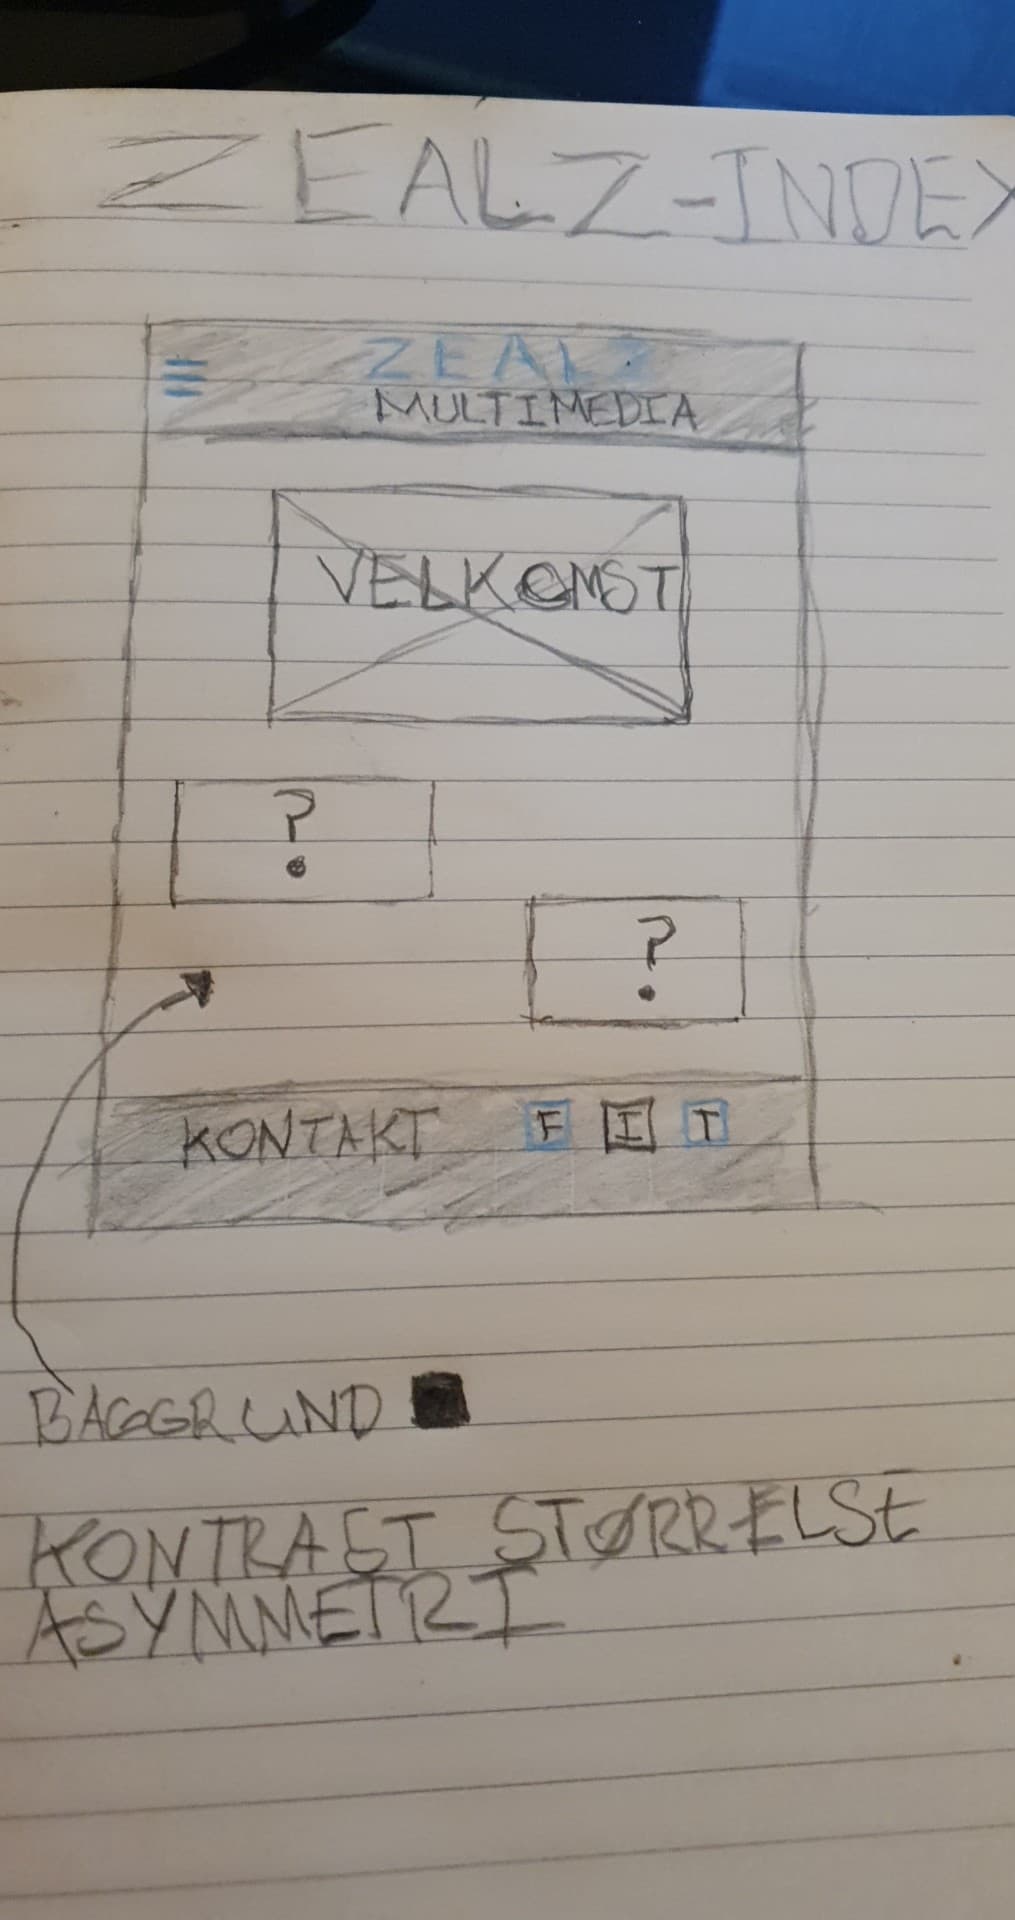 ZEALZ-INDEX
ZEALZ
MULTIMEDIA
VELKOMST
?
?
KONTAKT F I T
BAGGRUND
KONTRAST STØRRELSE
ASYMMETRI